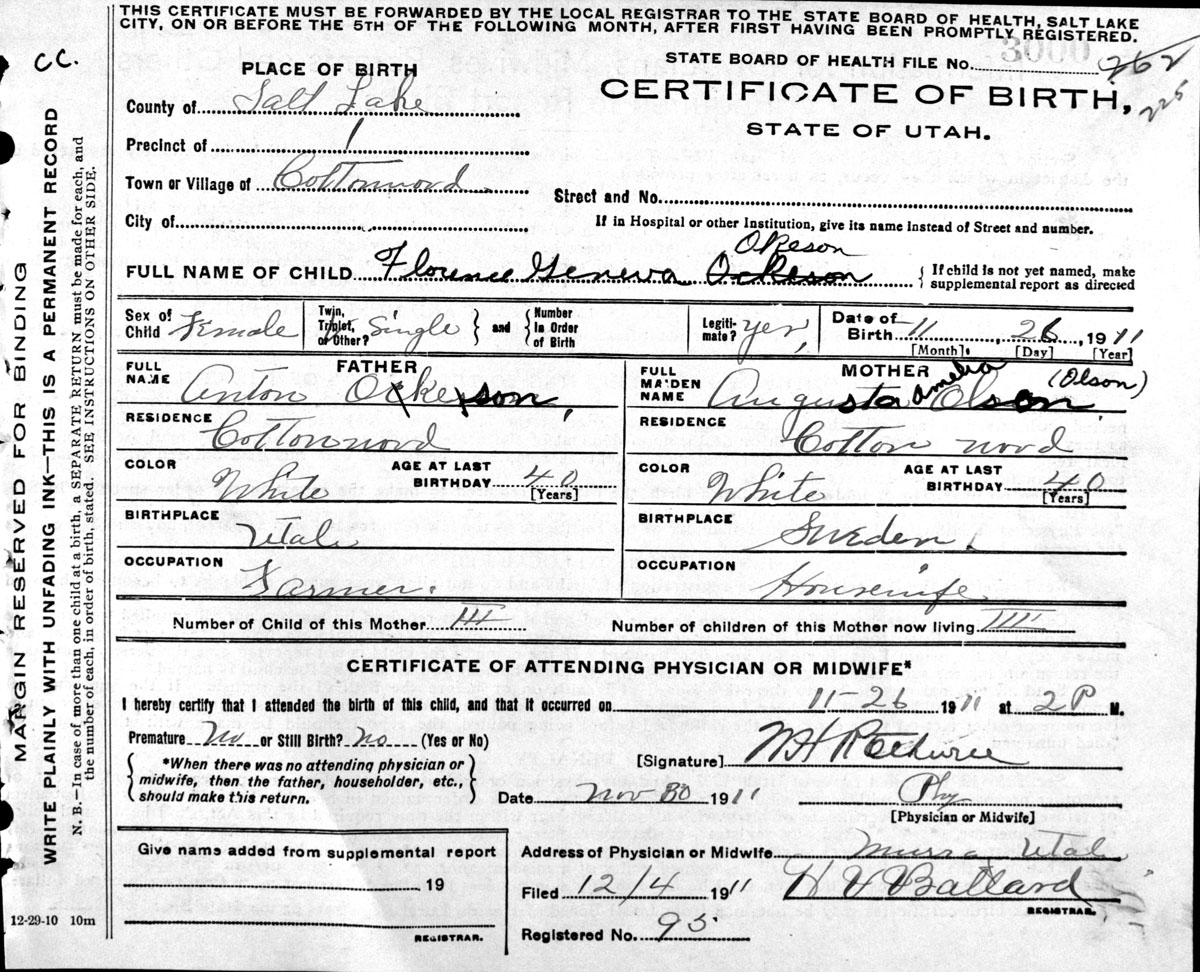 THIS CERTIFICATE MUST BE FORWARDED BY THE LOCAL REGISTRAR TO THE STATE BOARD OF HEALTH, SALT LAKE
CITY, ON OR BEFORE THE 5TH OF THE FOLLOWING MONTH, AFTER FIRST HAVING BEEN PROMPTLY REGISTERED.
3000
CC.
PLACE OF BIRTH
STATE BOARD OF HEALTH FILE No. 262
225
County of Salt Lake
CERTIFICATE OF BIRTH,
STATE OF UTAH.
Precinct of 1
Town or Village of Cottonwood
Street and No.
City of
If in Hospital or other Institution, give its name instead of Street and number.
Okeson
FULL NAME OF CHILD Florence Geneva Ockeson { If child is not yet named, make supplemental report as directed
Sex of Child Female Twin, Triplet, or Other? Single } and { Number in Order of Birth Legiti-mate? yes, Date of Birth 11, 26, 1911
[Month] [Day] [Year]
FATHER
FULL NAME Anton Ockeson,
RESIDENCE Cottonwood
COLOR White AGE AT LAST BIRTHDAY 40
[Years]
BIRTHPLACE Utah
OCCUPATION Farmer.
MOTHER
FULL MAIDEN NAME Augusta Amelia Olson (Olson)
RESIDENCE Cottonwood
COLOR White AGE AT LAST BIRTHDAY 40
[Years]
BIRTHPLACE Sweden.
OCCUPATION Housewife
Number of Child of this Mother III Number of children of this Mother now living III
CERTIFICATE OF ATTENDING PHYSICIAN OR MIDWIFE*
I hereby certify that I attended the birth of this child, and that it occurred on 11-26 1911 at 2 P M.
Premature No or Still Birth? No (Yes or No)
{ *When there was no attending physician or
midwife, then the father, householder, etc.,
should make this return. }
[Signature] W H
Date Nov 30 1911 Phy
[Physician or Midwife]
Give name added from supplemental report
19
REGISTRAR.
Address of Physician or Midwife Murray Utah
Filed 12/4 1911 H V Ballard
REGISTRAR.
Registered No. 95
12-29-10 10m
MARGIN RESERVED FOR BINDING
WRITE PLAINLY WITH UNFADING INK—THIS IS A PERMANENT RECORD
N. B.—In case of more than one child at a birth, a SEPARATE RETURN must be made for each, and
the number of each, in order of birth, stated. SEE INSTRUCTIONS ON OTHER SIDE.